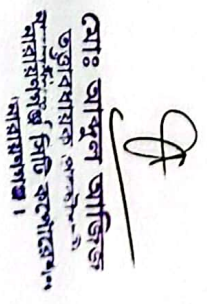 মোঃ আব্দুল আজিজ
তত্ত্বাবধায়ক প্রকৌশলী
নারায়ণগঞ্জ সিটি কর্পোরেশন
নারায়ণগঞ্জ।